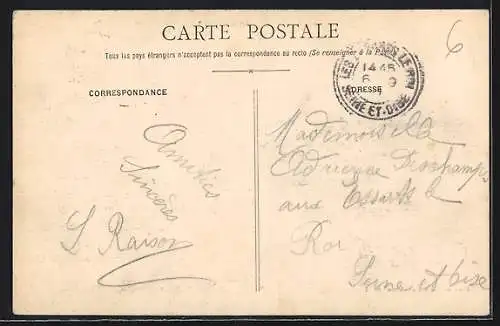 CARTE POSTALE
Tous les pays étrangers n'acceptent pas la correspondance au recto (Se renseigner à la Poste)
CORRESPONDANCE
ADRESSE
LES ESSARTS LE ROI
14 45
6 9
SEINE-ET-OISE
6
Amitiés
Sincères
S Raison
Mademoiselle
Adrienne Deschamps
aux Essarts le
Roi
Seine et Oise